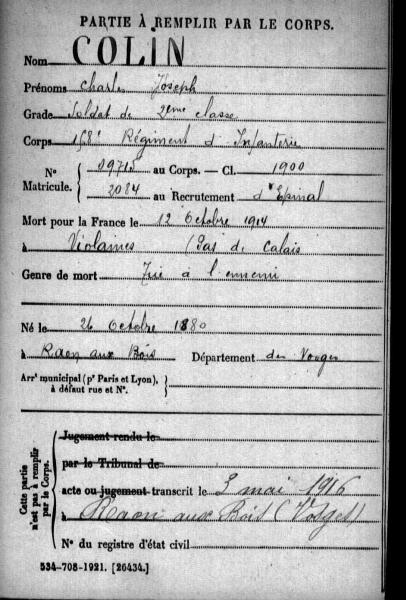 PARTIE À REMPLIR PAR LE CORPS.
Nom COLIN
Prénoms Charles Joseph
Grade Soldat de 2eme classe
Corps 158e Régiment d'Infanterie
N° 09715 au Corps. — Cl. 1900
Matricule. 2084 au Recrutement d'Epinal
Mort pour la France le 12 Octobre 1914
à Violaines (Pas de Calais
Genre de mort Tué à l'ennemi
Né le 26 Octobre 1880
à Raon aux Bois Département des Vosges
Arr' municipal (p' Paris et Lyon),
à défaut rue et N°.
Cette partie n'est pas à remplir par le Corps.
Jugement rendu le
par le Tribunal de
acte ou jugement transcrit le 3 mai 1916
à Raon aux Bois (Vosges)
N° du registre d'état civil
534-708-1921. [26434.]